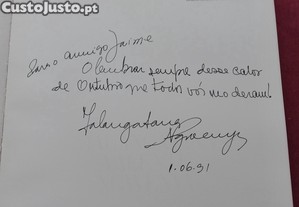 CustoJusto.pt
Para o amigo Jaime
O lembrar sempre desse calor
de Outubro que todos vós me deram!
Malangatana
1.06.91